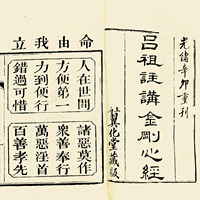 光緒辛卯重刊
呂祖註講金剛心經
翼化堂藏版
命由我立
人在世間
方便第一
力到便行
錯過可惜
諸惡莫作
衆善奉行
萬惡淫首
百善孝先